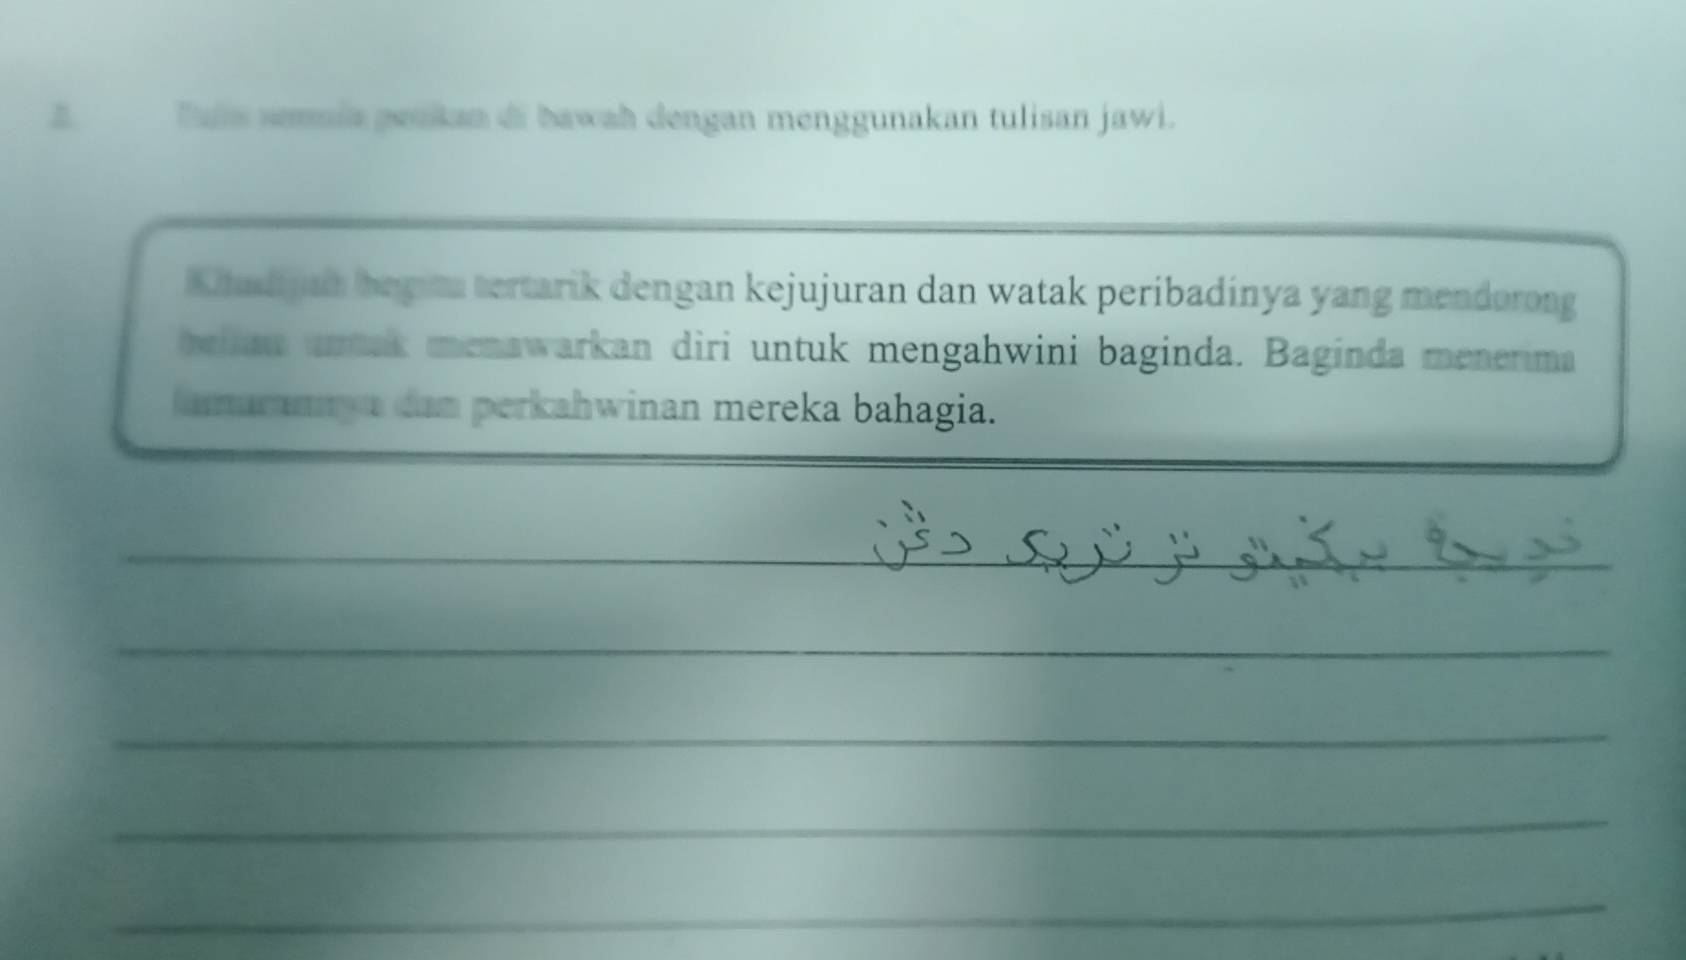 2. Tulis semula petikan di bawah dengan menggunakan tulisan jawi.
Khadijah begitu tertarik dengan kejujuran dan watak peribadinya yang mendorong
beliau untuk menawarkan diri untuk mengahwini baginda. Baginda menerima
lamarannya dan perkahwinan mereka bahagia.
خديجة بݢيتو ترتريک دڠن